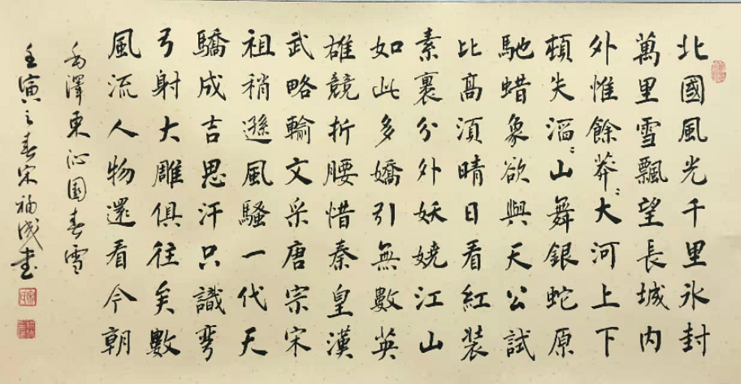 北國風光千里氷封
萬里雪飄望長城内
外惟餘莽〻大河上下
頓失滔〻山舞銀蛇原
馳蜡象欲與天公試
比高須晴日看紅装
素裹分外妖嬈江山
如此多嬌引無數英
雄競折腰惜秦皇漢
武略輸文采唐宗宋
祖稍遜風騷一代天
驕成吉思汗只識彎
弓射大雕俱往矣數
風流人物還看今朝
毛澤東沁園春雪
壬寅之春宋福成書